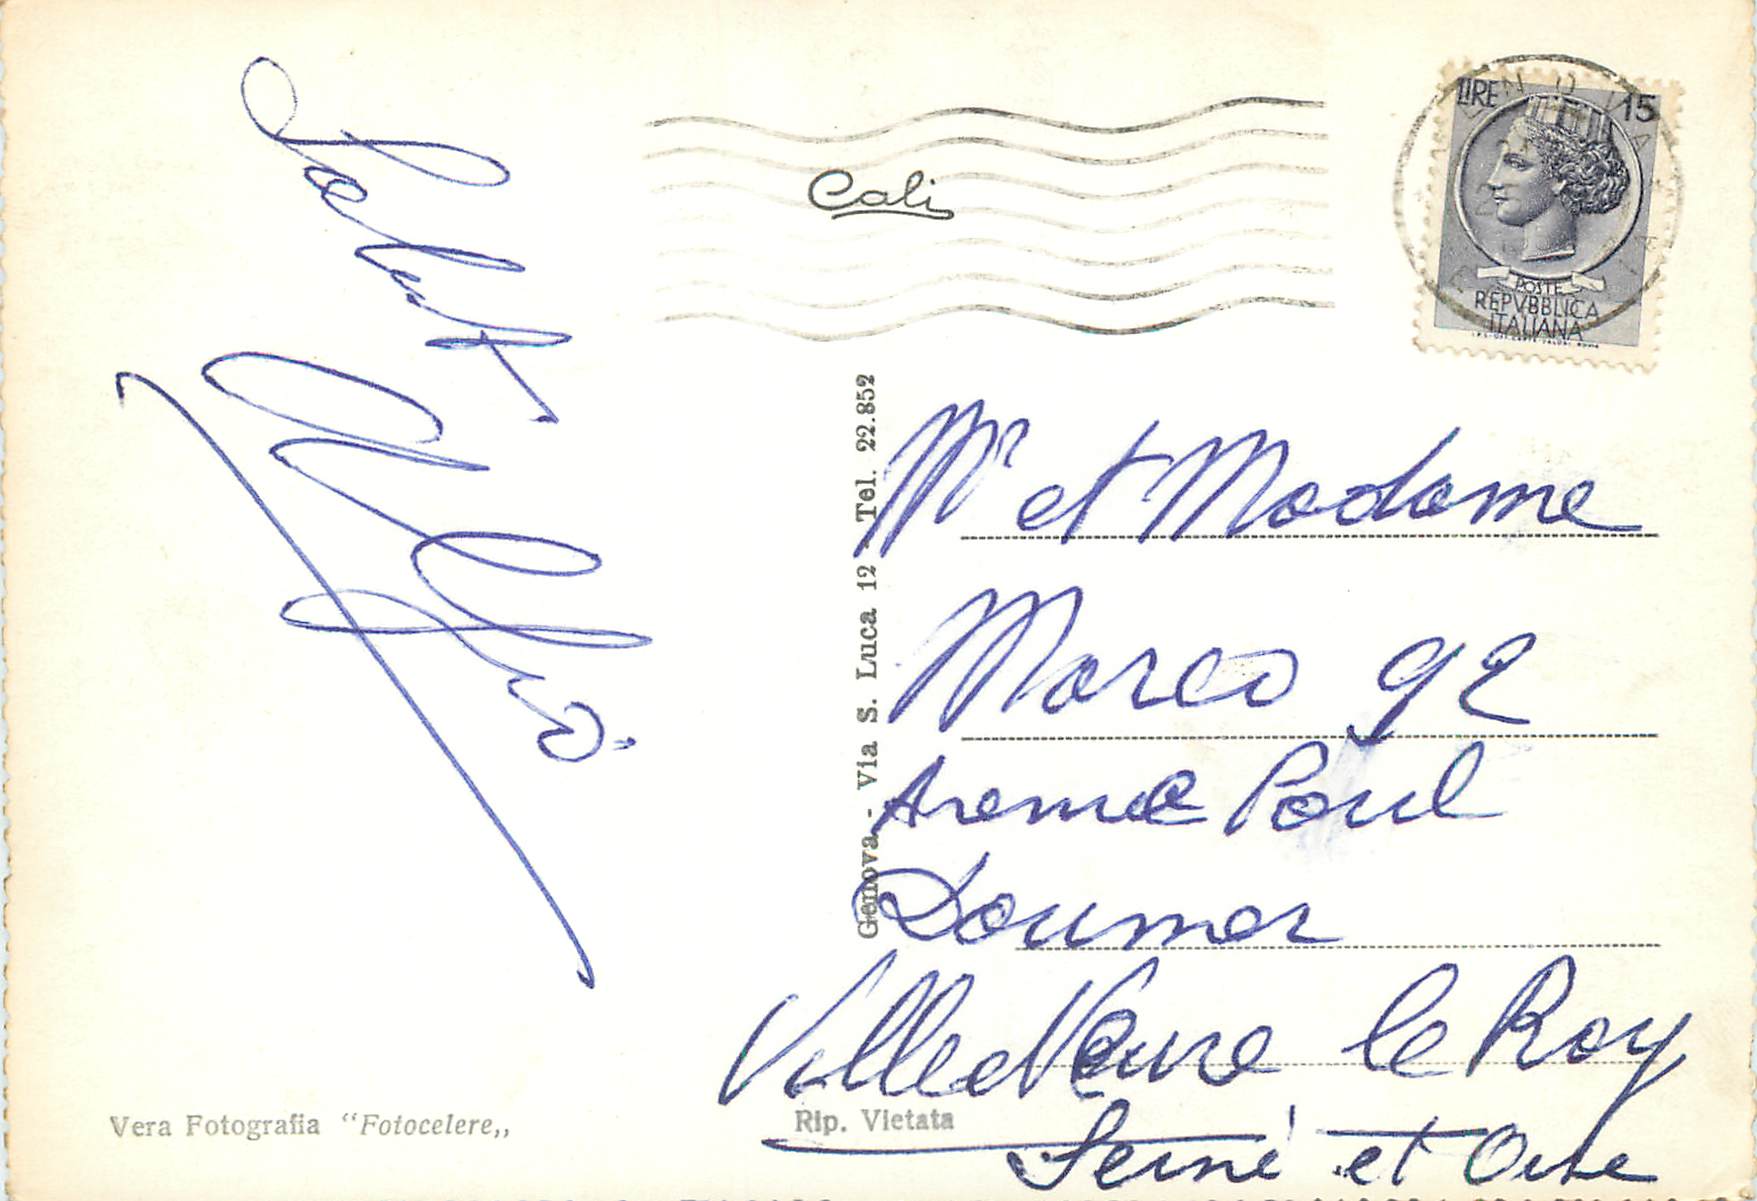 Cali
LIRE 15
POSTE
REPVBBLICA
ITALIANA
Genova - Via S. Luca 12 - Tel. 22.852
Mr et Madame
Marco 92
Avenue Paul
Doumer
Villeneuve le Roy
Seine et Oise
Vera Fotografia "Fotocelere„
Rip. Vietata